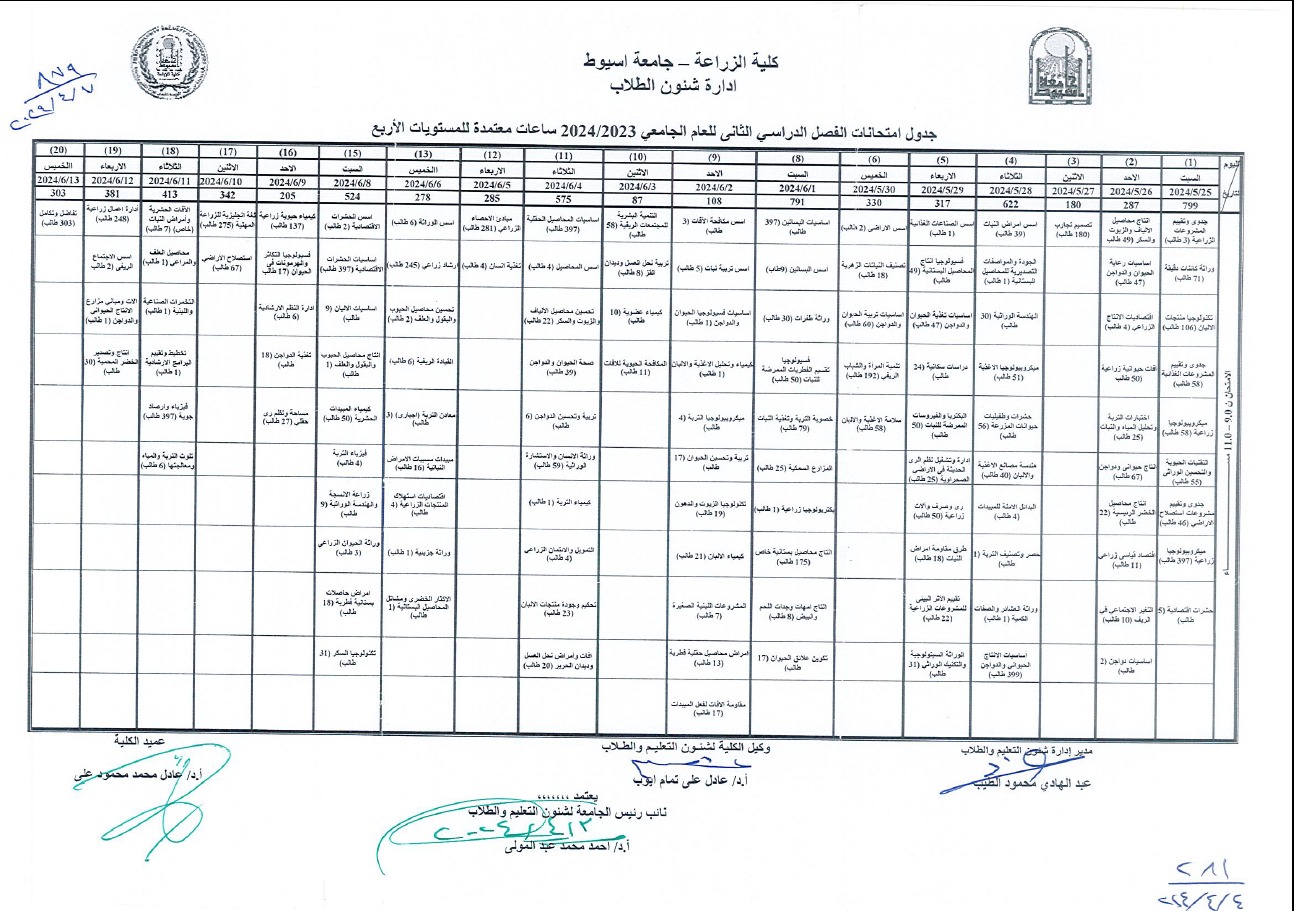 كلية الزراعة – جامعة اسيوط
ادارة شئون الطلاب
جدول امتحانات الفصل الدراسي الثانى للعام الجامعي 2024/2023 ساعات معتمدة للمستويات الأربع
اليوم (1) (2) (3) (4) (5) (6) (8) (9) (10) (11) (12) (13) (15) (16) (17) (18) (19) (20)
السبت الاحد الاثنين الثلاثاء الاربعاء الخميس السبت الاحد الاثنين الثلاثاء الاربعاء الخميس السبت الاحد الاثنين الثلاثاء الاربعاء الخميس
التاريخ 2024/5/25 2024/5/26 2024/5/27 2024/5/28 2024/5/29 2024/5/30 2024/6/1 2024/6/2 2024/6/3 2024/6/4 2024/6/5 2024/6/6 2024/6/8 2024/6/9 2024/6/10 2024/6/11 2024/6/12 2024/6/13
799 287 180 622 317 330 791 108 87 575 285 278 524 205 342 413 381 303
جدوى وتقييم المشروعات الزراعية (3 طالب)
انتاج محاصيل الالياف والزيوت والسكر (49 طالب)
تصميم تجارب (180 طالب)
اسس امراض النبات (39 طالب)
اسس الصناعات الغذائية (1 طالب)
اسس الاراضى (2 طالب)
اساسيات البساتين (397 طالب)
اسس مكافحة الافات (3 طالب)
التنمية البشرية للمجتمعات الريفية (58 طالب)
اساسيات المحاصيل الحقلية (397 طالب)
مبادئ الاحصاء الزراعي (281 طالب)
اسس الوراثة (6 طالب)
اسس الحشرات الاقتصادية (2 طالب)
كيمياء حيوية زراعية (137 طالب)
لغة انجليزية للزراعة المهنية (275 طالب)
الأفات الحشرية وأمراض النبات (خاص) (7 طالب)
ادارة اعمال زراعية (248 طالب)
تفاضل وتكامل (303 طالب)
وراثة كائنات دقيقة (71 طالب)
اساسيات رعاية الحيوان والدواجن (47 طالب)
الجودة والمواصفات التصديرية للمحاصيل البستانية (1 طالب)
فسيولوجيا انتاج المحاصيل البستانية (49 طالب)
تصنيف النباتات الزهرية (18 طالب)
اسس البساتين (9 طالب)
اسس تربية نبات (5 طالب)
تربية نحل العسل وديدان القز (8 طالب)
اسس المحاصيل (4 طالب)
تغذية انسان (4 طالب)
ارشاد زراعي (245 طالب)
اساسيات الحشرات الاقتصادية (397 طالب)
فسيولوجيا التكاثر والهرمونات فى الحيوان (17 طالب)
استصلاح الاراضى (67 طالب)
محاصيل العلف والمراعي (1 طالب)
اسس الاجتماع الريفي (2 طالب)
تكنولوجيا منتجات الالبان (106 طالب)
اقتصاديات الانتاج الزراعي (4 طالب)
الهندسة الوراثية (30 طالب)
اساسيات تغذية الحيوان والدواجن (47 طالب)
اساسيات تربية الحيوان والدواجن (60 طالب)
وراثة طفرات (30 طالب)
اساسيات فسيولوجيا الحيوان والدواجن (1 طالب)
كيمياء عضوية (10 طالب)
تحسين محاصيل الالياف والزيوت والسكر (22 طالب)
تحسين محاصيل الحبوب والبقول والعلف (2 طالب)
اساسيات الالبان (9 طالب)
ادارة النظم الارشادية (6 طالب)
التخمرات الصناعية واللبنية (1 طالب)
الات ومبانى مزارع الانتاج الحيوانى والدواجن (1 طالب)
جدوى وتقييم المشروعات الغذائية (58 طالب)
افات حيوانية زراعية (50 طالب)
ميكروبيولوجيا الاغذية (51 طالب)
دراسات سكانية (24 طالب)
تنمية المرأة والشباب الريفي (192 طالب)
فسيولوجيا تقسيم الفطريات الممرضة للنبات (50 طالب)
كيمياء وتحليل الاغذية والالبان (1 طالب)
المكافحة الحيوية للافات (11 طالب)
صحة الحيوان والدواجن (39 طالب)
القيادة الريفية (6 طالب)
انتاج محاصيل الحبوب والبقول والعلف (1 طالب)
تغذية الدواجن (18 طالب)
تخطيط وتقييم البرامج الارشادية (1 طالب)
انتاج وتصدير الخضر المحمية (30 طالب)
ميكروبيولوجيا زراعية (58 طالب)
اختبارات التربة وتحليل المياه والنبات (25 طالب)
حشرات وطفيليات حيوانات المزرعة (56 طالب)
البكتريا والفيروسات الممرضة للنبات (50 طالب)
سلامة الاغذية والالبان (58 طالب)
خصوبة التربة وتغذية النبات (79 طالب)
ميكروبيولوجيا التربة (4 طالب)
تربية وتحسين الدواجن (6 طالب)
معادن التربة (اجبارى) (3 طالب)
كيمياء المبيدات الحشرية (50 طالب)
مساحة ونظم رى حقلي (27 طالب)
فيزياء وارصاد جوية (397 طالب)
التقنيات الحيوية والتحسين الوراثى (55 طالب)
انتاج حيوانى ودواجن (67 طالب)
هندسة مصانع الاغذية والالبان (40 طالب)
ادارة وتشغيل نظم الرى الحديثة في الاراضى الصحراوية (25 طالب)
المزارع السمكية (25 طالب)
تربية وتحسين الحيوان (17 طالب)
وراثة الانسان والاستشارة الوراثية (59 طالب)
مبيدات مسببات الامراض النباتية (16 طالب)
فيزياء التربة (4 طالب)
تلوث التربة والمياه ومعالجتها (6 طالب)
جدوى وتقييم مشروعات استصلاح الاراضي (46 طالب)
انتاج محاصيل الخضر الرئيسية (22 طالب)
البدائل الامنة للمبيدات (4 طالب)
رى وصرف والات زراعية (50 طالب)
بكتريولوجيا زراعية (1 طالب)
تكنولوجيا الزيوت والدهون (19 طالب)
كيمياء التربة (1 طالب)
اقتصاديات استهلاك المنتجات الزراعية (4 طالب)
زراعة الانسجة والهندسة الوراثية (9 طالب)
ميكروبيولوجيا زراعية (397 طالب)
اقتصاد قياسى زراعي (11 طالب)
حصر وتصنيف التربة (1 طالب)
طرق مقاومة امراض النبات (18 طالب)
انتاج محاصيل بستانية خاص (175 طالب)
كيمياء الالبان (21 طالب)
التمويل والائتمان الزراعي (4 طالب)
وراثة جزيئية (1 طالب)
وراثة الحيوان الزراعي (3 طالب)
حشرات اقتصادية (5 طالب)
التغير الاجتماعى فى الريف (10 طالب)
وراثة العشائر والصفات الكمية (1 طالب)
تقييم الاثر البيئى للمشروعات الزراعية (22 طالب)
انتاج امهات وجدات اللحم والبيض (8 طالب)
المشروعات اللبنية الصغيرة (7 طالب)
تحكيم وجودة منتجات الالبان (23 طالب)
الاكثار الخضرى ومشاتل المحاصيل البستانية (1 طالب)
امراض حاصلات بستانية فطرية (18 طالب)
اساسيات دواجن (2 طالب)
اساسيات الانتاج الحيواني والدواجن (399 طالب)
الوراثة السيتولوجية والتكنيك الوراثى (31 طالب)
تكوين علائق الحيوان (17 طالب)
امراض محاصيل حقلية فطرية (13 طالب)
افات وأمراض نحل العسل وديدان الحرير (20 طالب)
تكنولوجيا السكر (31 طالب)
مقاومة الافات لفعل المبيدات (17 طالب)
الامتحان 9.0 – 11.0 مســـاء
مدير إدارة شئون التعليم والطلاب
عبد الهادي محمود الطيب
وكيل الكلية لشئون التعليم والطلاب
أ.د/ عادل على تمام ايوب
عميد الكلية
أ.د/ عادل محمد محمود على
يعتمد ،،،،،،،
نائب رئيس الجامعة لشئون التعليم والطلاب
أ.د/ احمد محمد عبد المولى